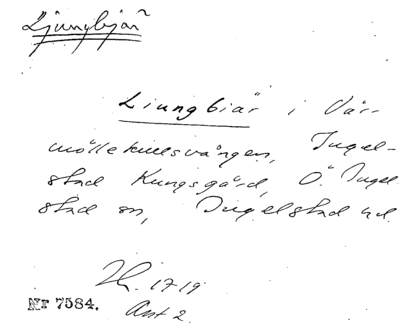 Ljungbjär
Liungbiär i Vär-
möllekullsvången, Ingel-
stad Kungsgård, Ö. Ingel-
stad sn, Ingelstad hd
1719
Nr 7584. Akt 2